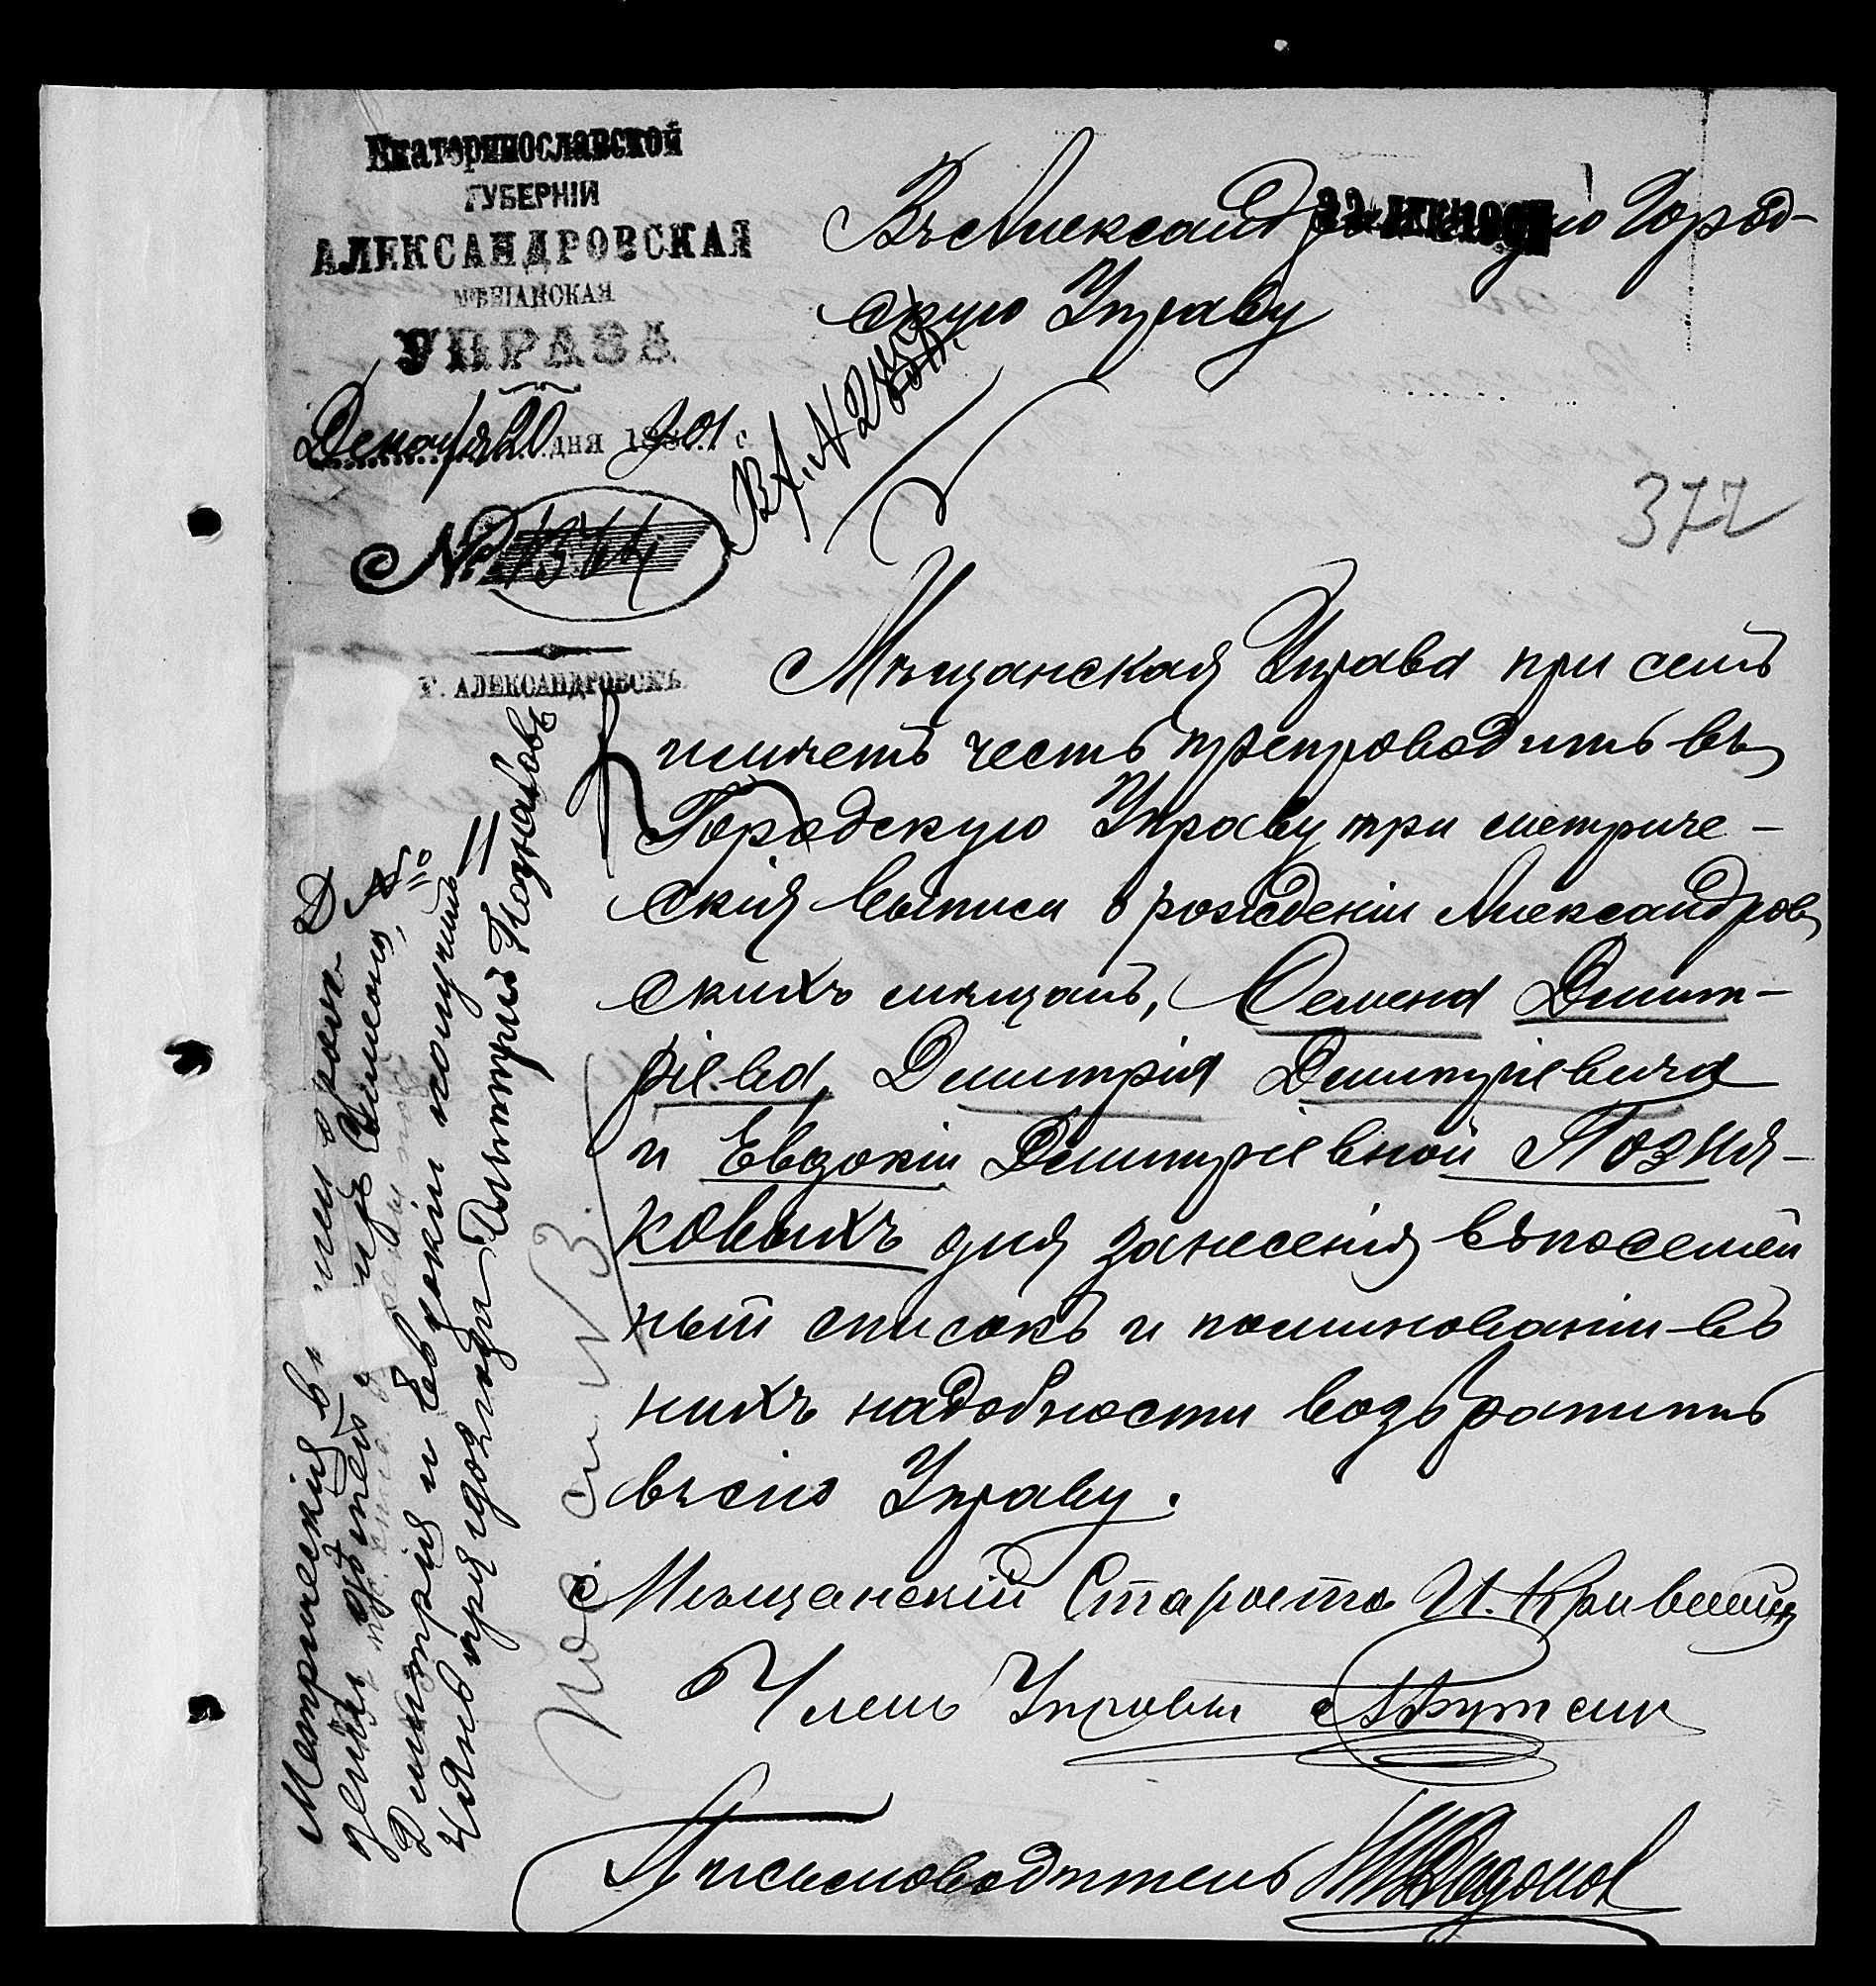 Екатеринославской
ГУБЕРНІИ
АЛЕКСАНДРОВСКАЯ
МѢЩАНСКАЯ
УПРАВА
Декабря 20 дня 1901 г.
№ 1344
Г. АЛЕКСАНДРОВСКЪ.
Въ Александровскую Город-
скую Управу
22 ДЕК. 1901
Вх. №
377
Мѣщанская Управа при семъ
имѣетъ честь препроводить въ
Городскую Управу три метриче-
скія выписи о рожденіи Александров
скихъ мѣщанъ, Семена Димит-
ріева, Димитрія Димитріевича
и Евдокіи Димитріевной Позня-
ковыхъ для занесенія въ посемей
ный списокъ и по минованіи въ
нихъ надобности возвратить
въ сію Управу.
Мѣщанскій Староста И. Кривошеинъ
Членъ Управы
Письмоводитель
Метрическія в
деніи дѣтей
Димитрія и Евдокіи получилъ
Дмитрій Позняковъ
№ 3.